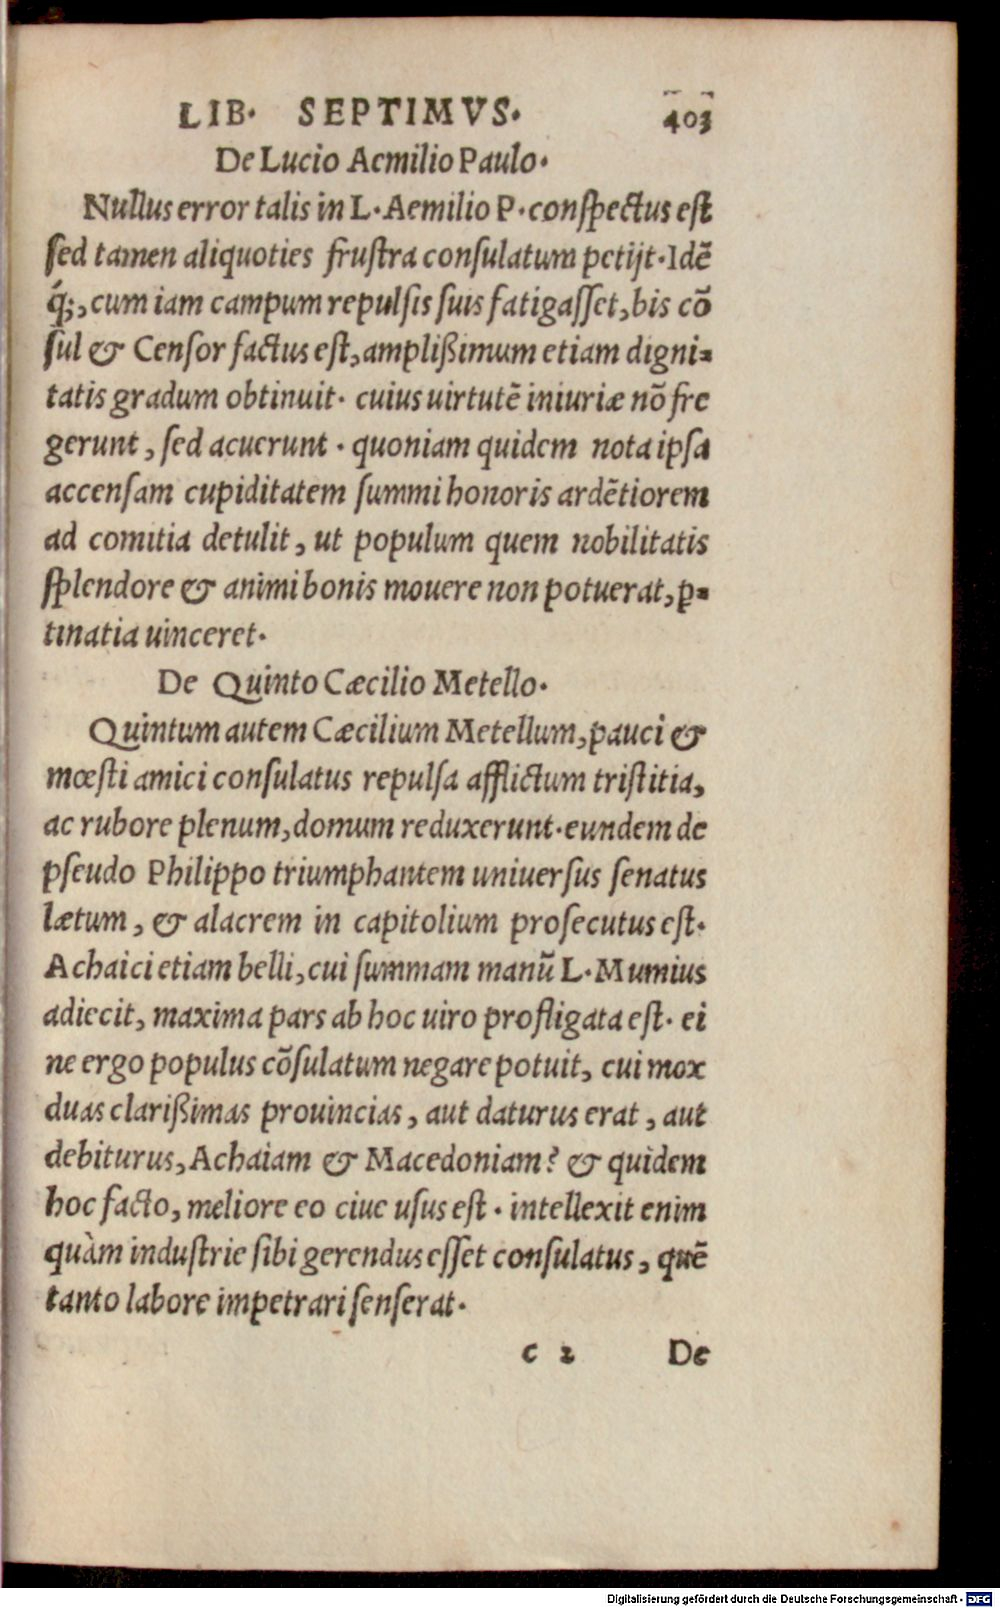 LIB. SEPTIMVS. 403
De Lucio Aemilio Paulo.
Nullus error talis in L. Aemilio P. conſpectus eſt
ſed tamen aliquoties fruſtra conſulatum petijt. Idē
q́;, cum iam campum repulſis ſuis fatigaſſet, bis cō
ſul & Cenſor factus eſt, ampliſsimum etiam digni-
tatis gradum obtinuit. cuius uirtutē iniuriæ nō fre
gerunt, ſed acuerunt. quoniam quidem nota ipſa
accenſam cupiditatem ſummi honoris ardētiorem
ad comitia detulit, ut populum quem nobilitatis
ſplendore & animi bonis mouere non potuerat, ꝑ-
tinatia uinceret.
De Quinto Cæcilio Metello.
Quintum autem Cæcilium Metellum, pauci &
mœſti amici conſulatus repulſa afflictum triſtitia,
ac rubore plenum, domum reduxerunt. eundem de
pſeudo Philippo triumphantem uniuerſus ſenatus
lætum, & alacrem in capitolium proſecutus eſt.
Achaici etiam belli, cui ſummam manū L. Mumius
adiecit, maxima pars ab hoc uiro profligata eſt. ei
ne ergo populus cōſulatum negare potuit, cui mox
duas clariſsimas prouincias, aut daturus erat, aut
debiturus, Achaiam & Macedoniam? & quìdem
hoc facto, meliore eo ciue uſus eſt. intellexit enim
quàm induſtrie ſibi gerendus eſſet conſulatus, quē
tanto labore impetrari ſenſerat.
c 2 De
Digitalisierung gefördert durch die Deutsche Forschungsgemeinschaft - DFG